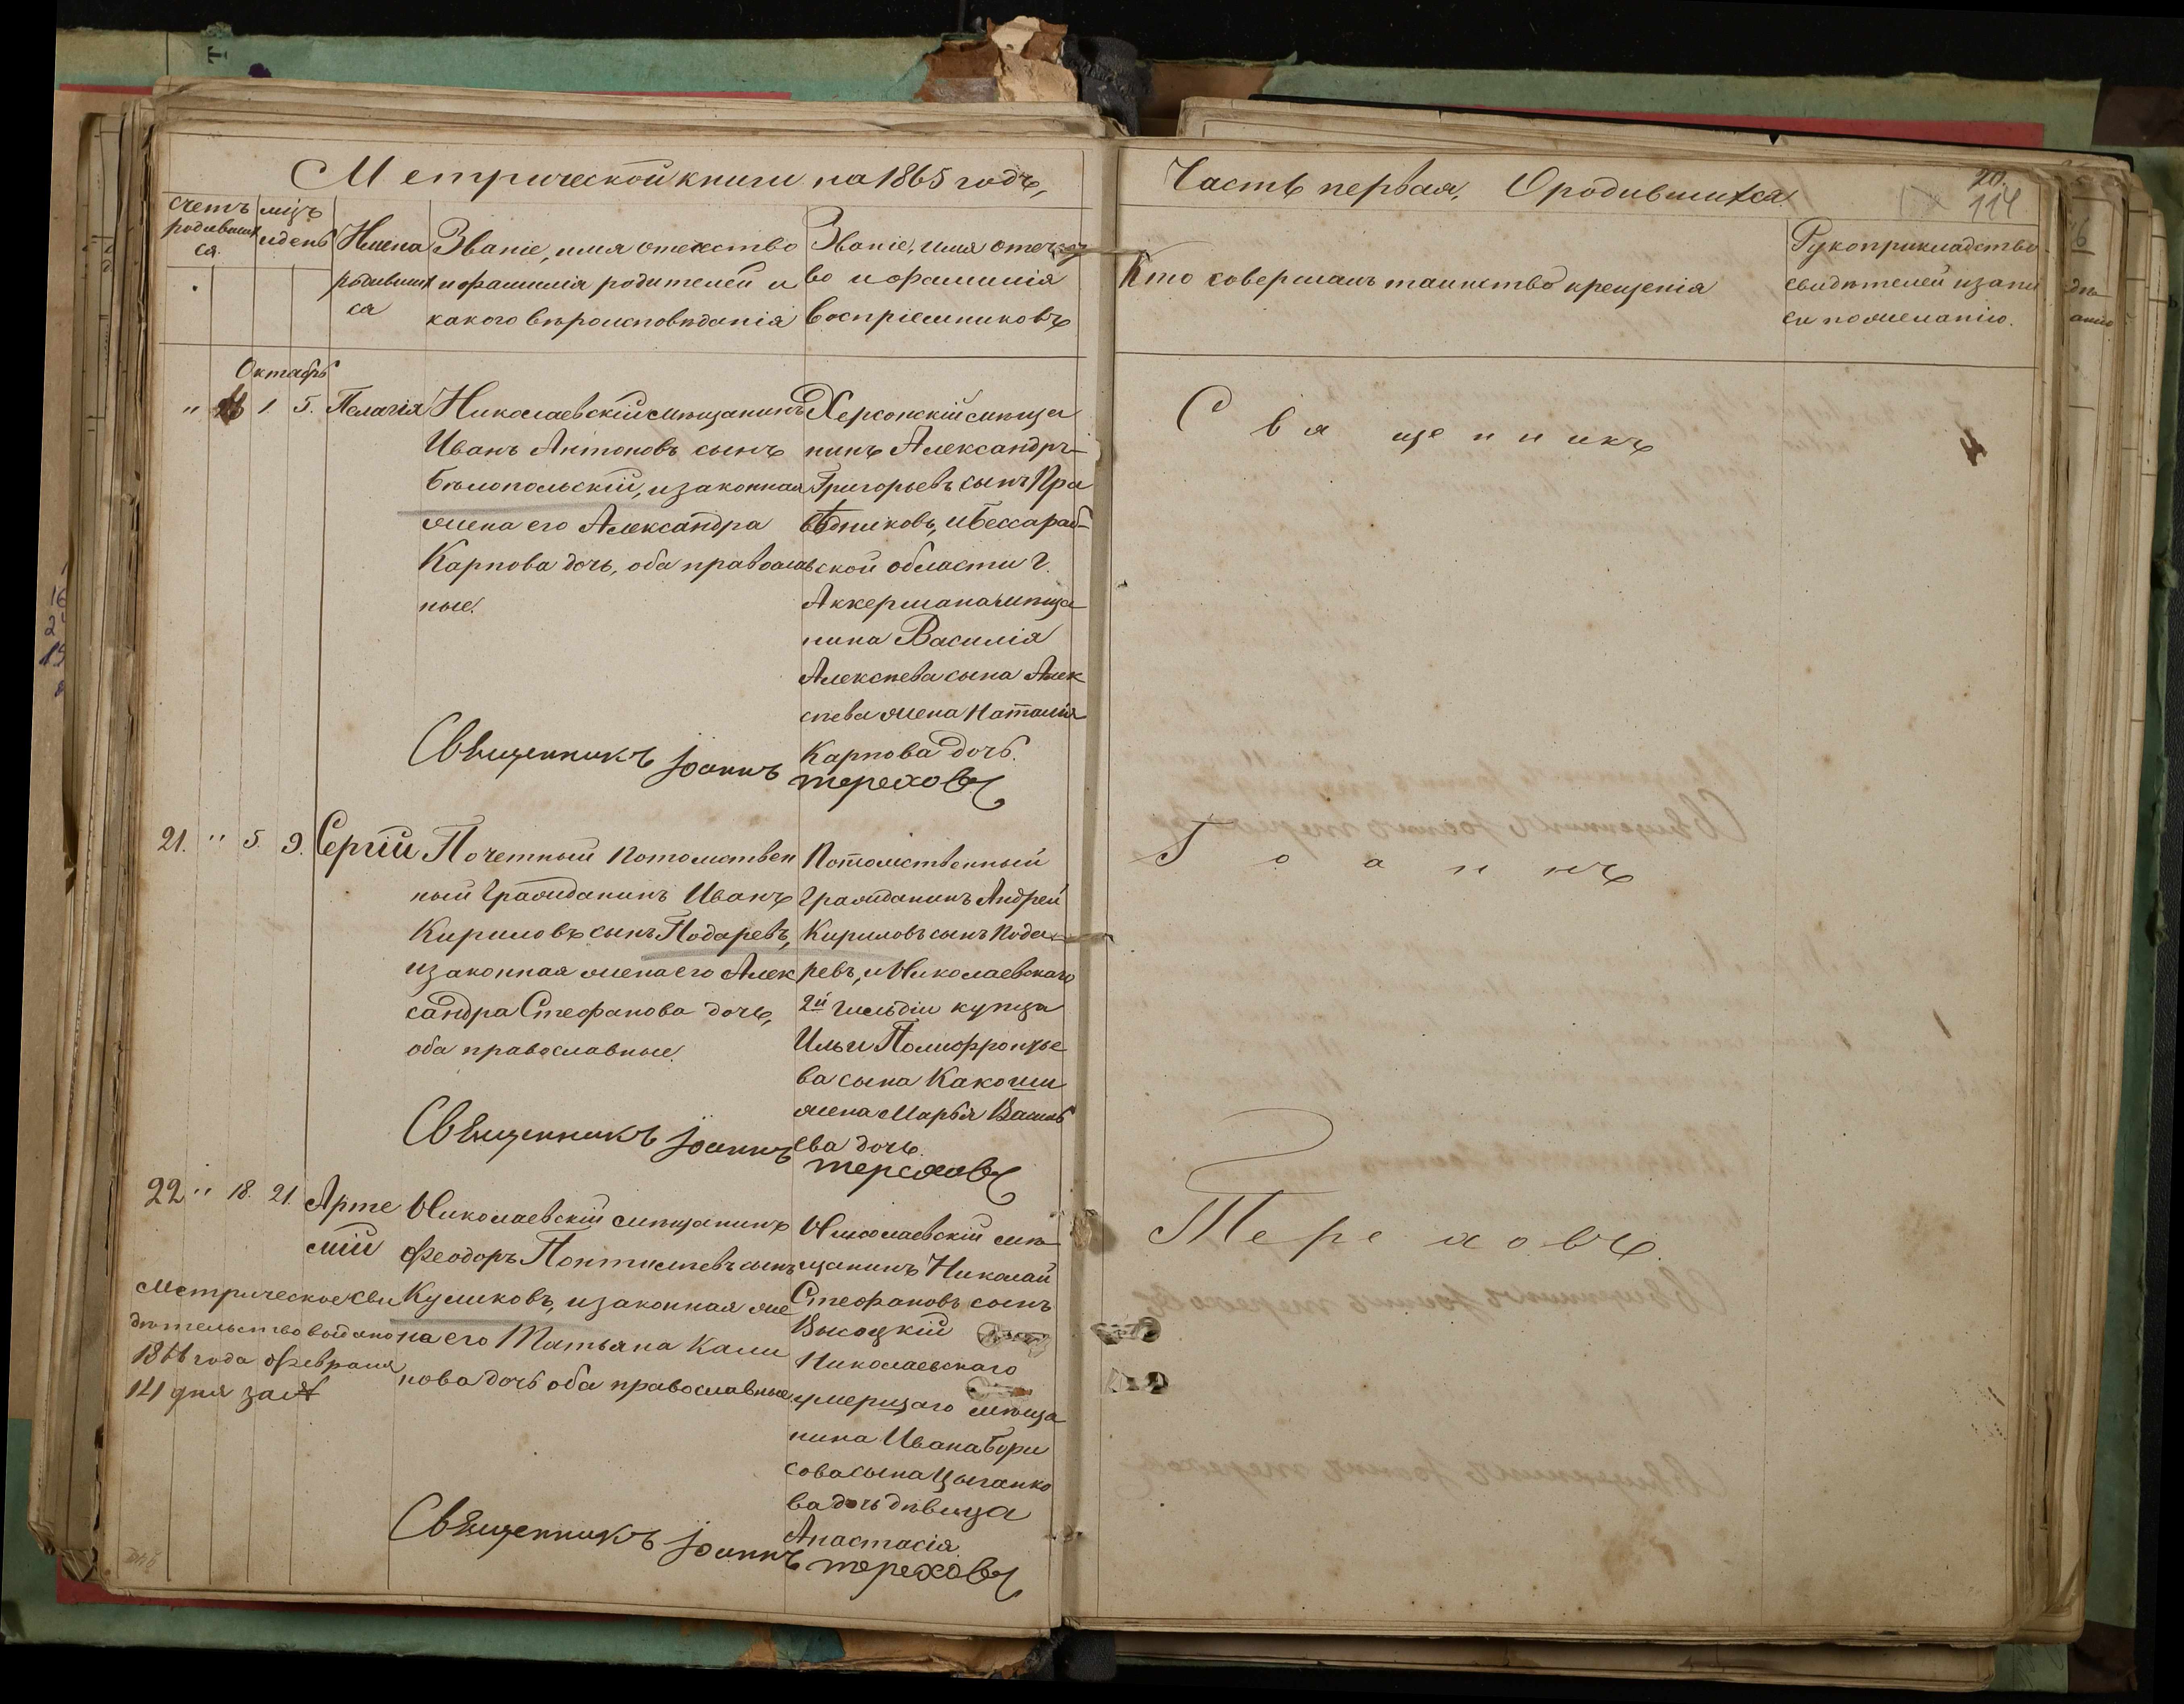 Метрической книги на 1865 годъ,
Часть первая, О родившихся
20.
114
счетъ родивших ся
мцъ и день
Имена родивших ся
Званіе, имя отечество
и фамилія родителей и
какого вѣроисповѣданія
Званіе, имя отечест
во и фамилія
воспріемниковъ
Кто совершалъ таинство крещенія
Рукоприкладство
свидѣтелей изапи
си по желанію.
Октябрь
" 1 5. Пелагія
Николаевскій мѣщанинъ
Иванъ Антоновъ сынъ
Бѣлопольскій, и законная
жена его Александра
Карпова дочь, оба православ
ные.
Херсонскій мѣща
нинъ Александръ
Григорьевъ сынъ Пра
вѣдниковъ, и Бессараб
ской области г.
Аккермана мѣща
нина Василія
Алексѣева сына Алек
сѣева жена Наталія
Карпова дочь.
Священникъ Іоаннъ Тереховъ
21. " 5 9. Сергій
Почетный Потомствен
ный Гражданинъ Иванъ
Кириловъ сынъ Подаревъ,
и законная жена его Алек
сандра Стефанова дочь,
оба православные.
Потомственный
Гражданинъ Андрей
Кириловъ сынъ Пода
ревъ, и Николаевскаго
2й гильдіи купца
Ильи Полифронтье
ва сына Какоши
жена Марья Василь
ева дочь.
Священникъ Іоаннъ Тереховъ
22 " 18. 21. Арте
мій
Николаевскій мѣщанинъ
Феодоръ Пантилѣевъ сынъ
Куликовъ, и законная же
на его Татьяна Кали
нова дочь оба православные
Николаевскій мѣ
щанинъ Николай
Стефановъ сынъ
Высоцкій
Николаевскаго
умершаго мѣща
нина Ивана Бори
сова сына Цыганко
ва дочь дѣвица
Анастасія
Метрическое сви
дѣтельство выдано
1866 года Февраля
14 дня за №
Священникъ Іоаннъ Тереховъ
Священникъ
Іоаннъ
Тереховъ.